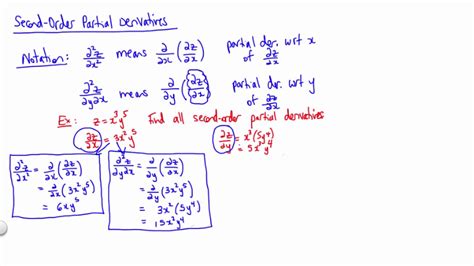 Second-Order Partial Derivatives
Notation: ∂²z/∂x² means ∂/∂x (∂z/∂x) partial der. wrt x of ∂z/∂x
∂²z/∂y∂x means ∂/∂y (∂z/∂x) partial der. wrt y of ∂z/∂x
Ex: z = x³y⁵ Find all second-order partial derivatives
∂z/∂x = 3x²y⁵
∂z/∂y = x³(5y⁴)
= 5x³y⁴
∂²z/∂x² = ∂/∂x (∂z/∂x)
= ∂/∂x (3x²y⁵)
= 6xy⁵
∂²z/∂y∂x = ∂/∂y (∂z/∂x)
= ∂/∂y (3x²y⁵)
= 3x²(5y⁴)
= 15x²y⁴